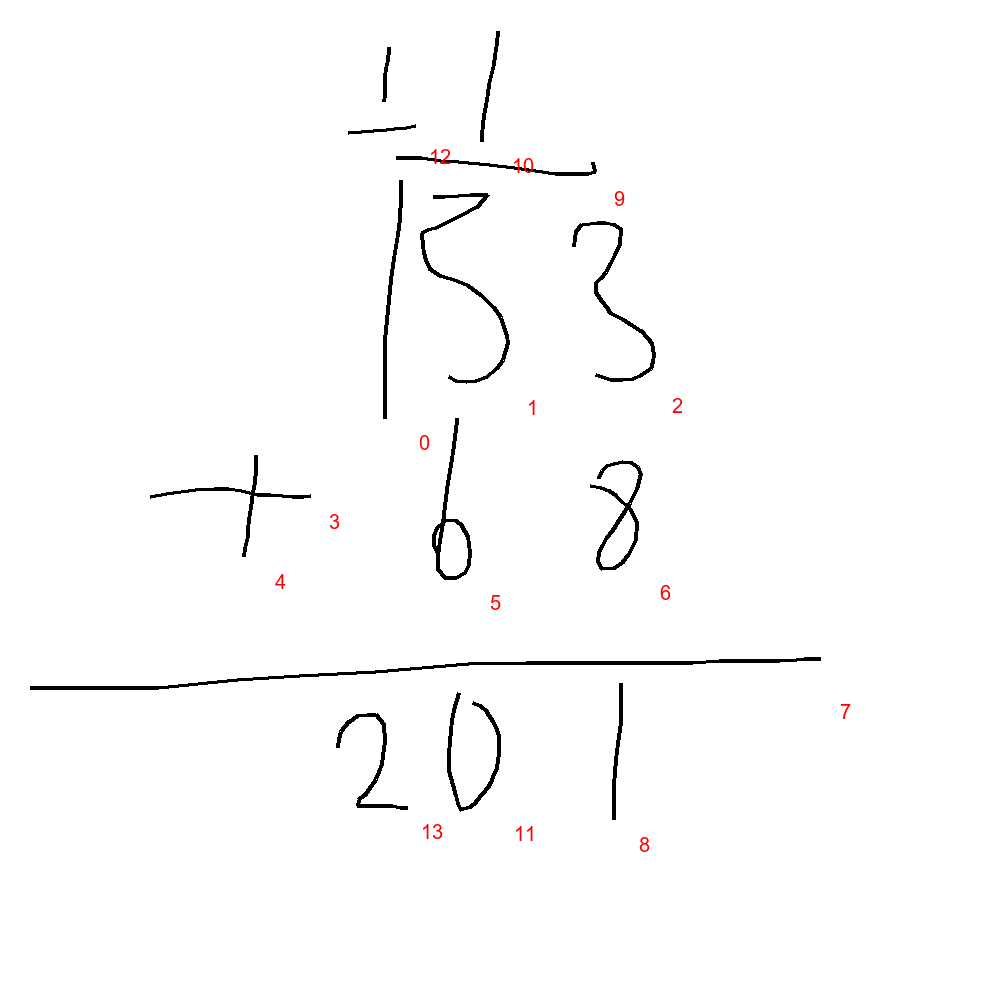 1 1
12 10 9
133
0 1 2
+ 68
3 4 5 6
7
201
13 11 8